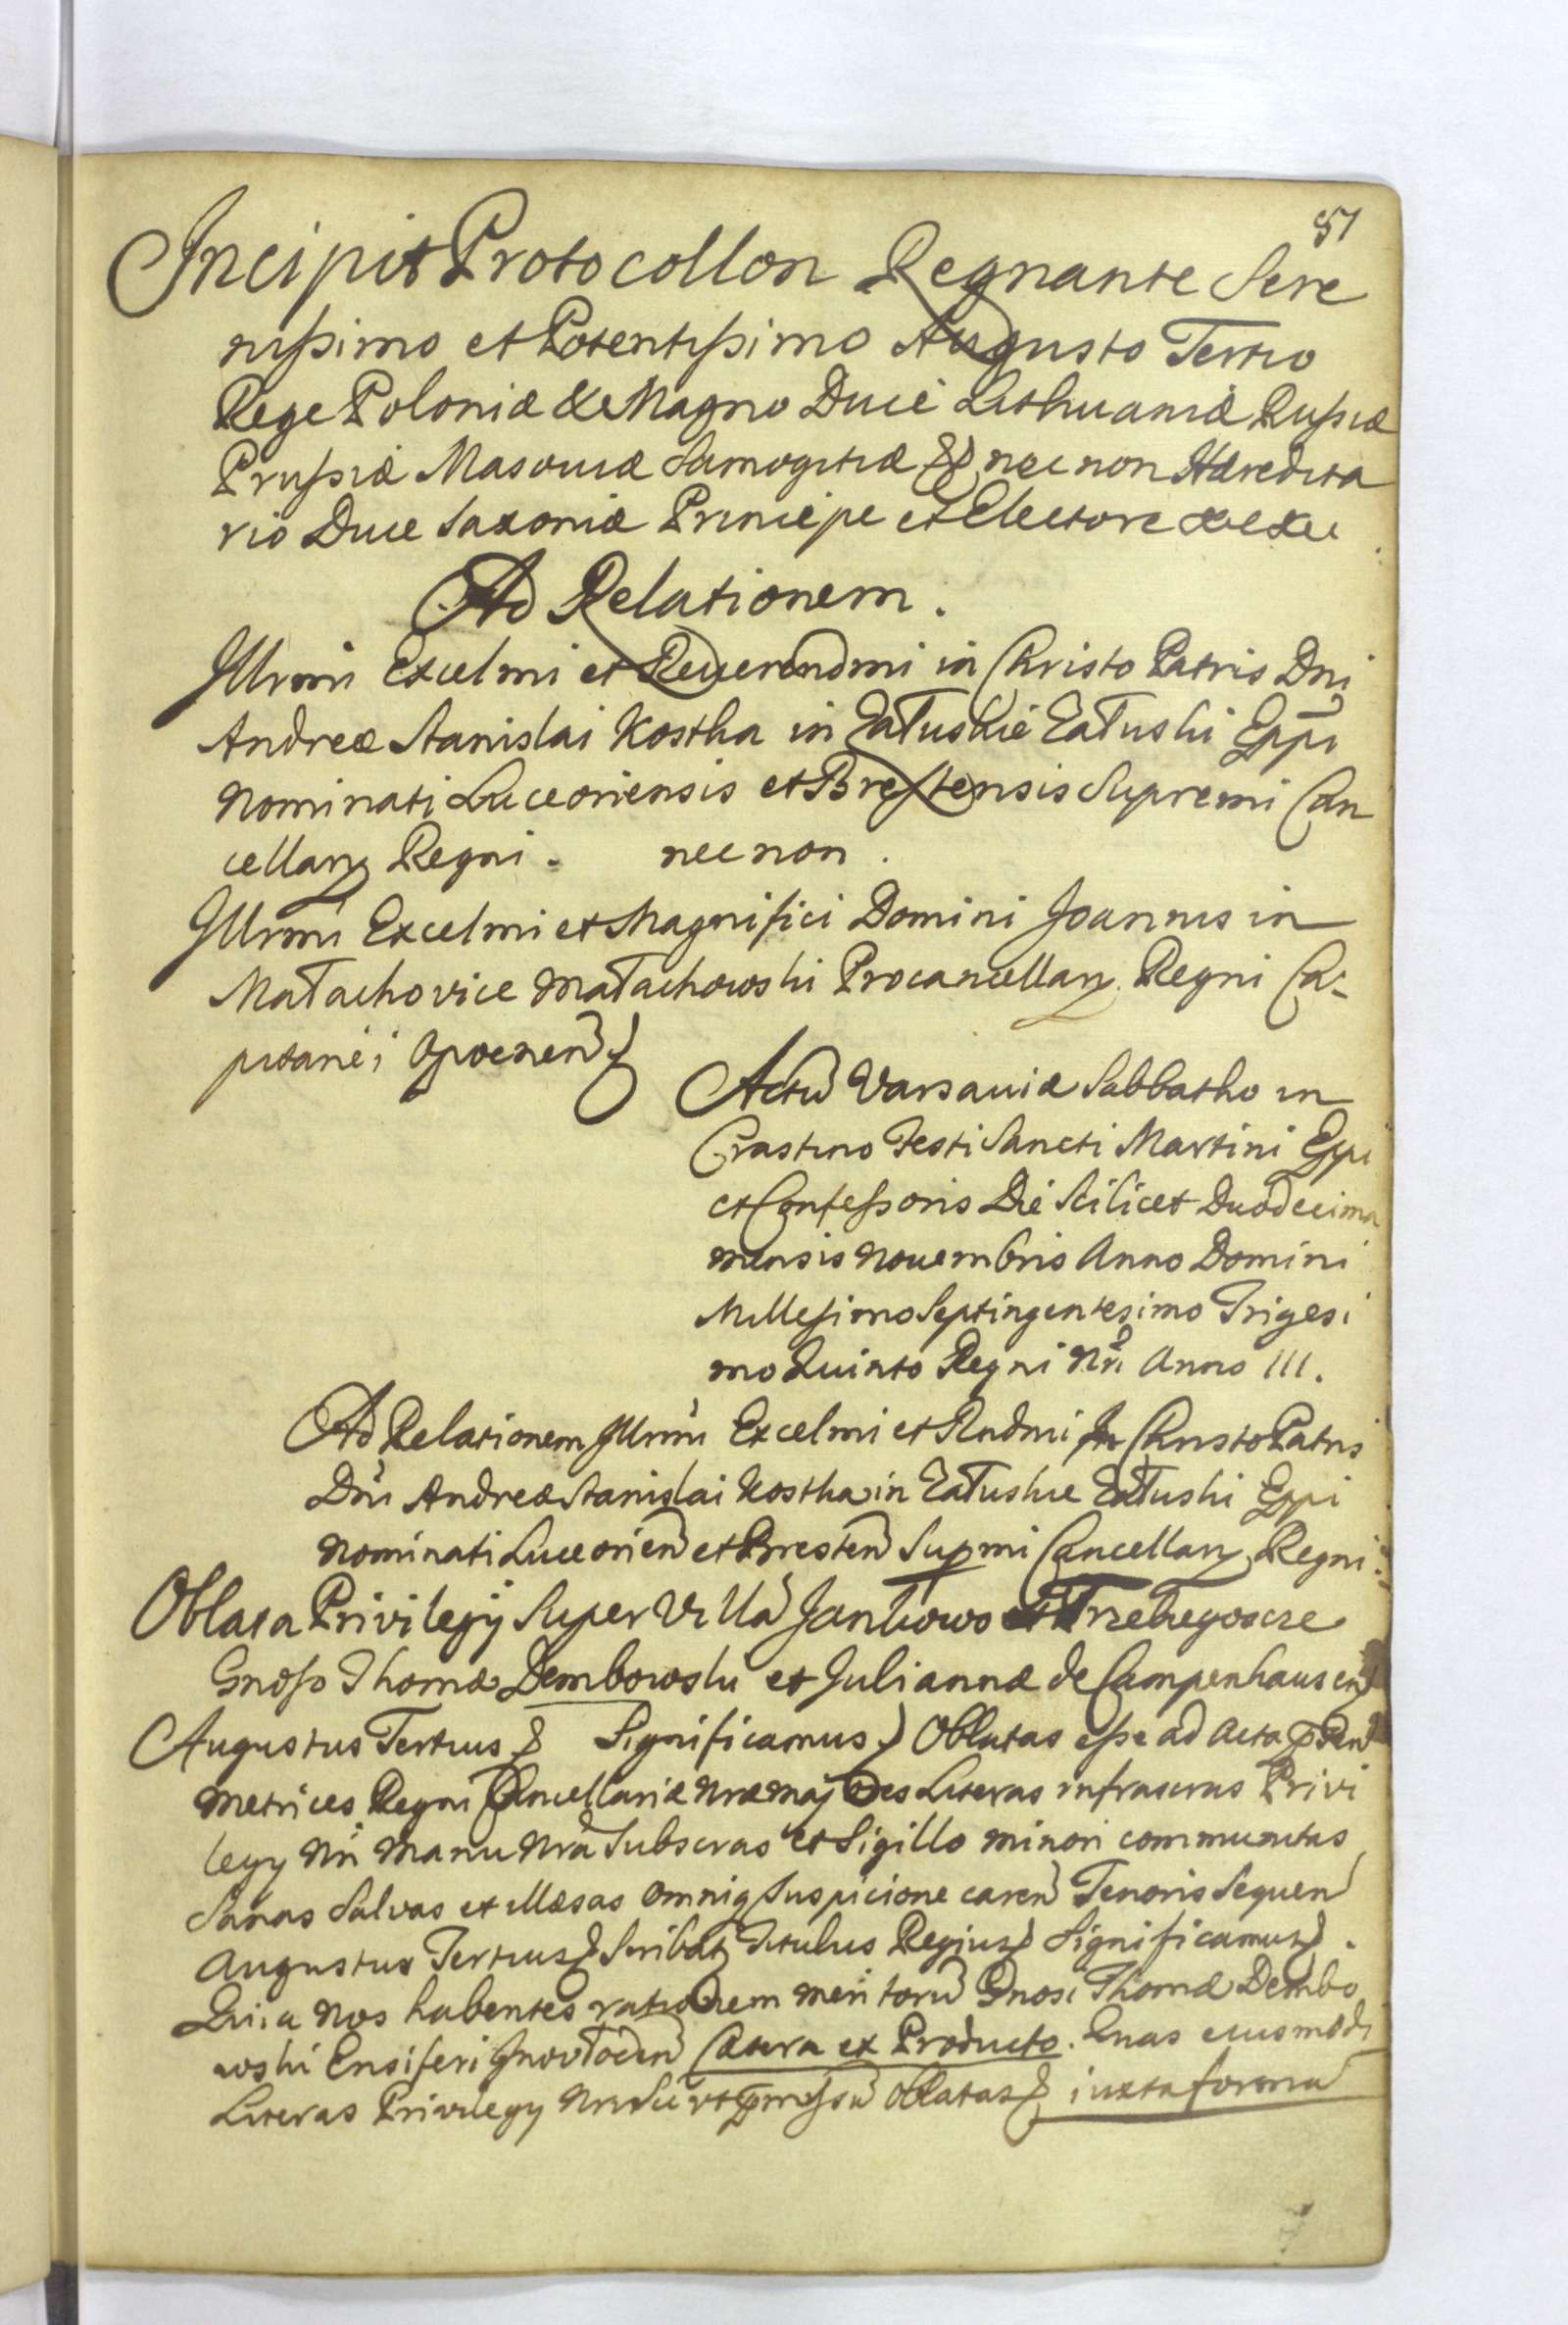 51
Incipit Protocollon Regnante Sere
nissimo et Potentissimo Augusto Tertio
Rege Poloniæ &c Magno Duce Lithuaniæ Russiæ
Prussiæ Masoviæ Samogitiæ && nec non Hæredita
rio Duce Saxoniæ Principe et Electore &c &c
Ad Relationem.
Illrmi Excelmi et Reuerendmi in Christo Patris Dni
Andreæ Stanislai Kostha in Załuskie Załuski Eppi
Nominati Luceoriensis et Brestensis Supremi Can
cellarij Regni. nec non.
Illrmi Excelmi et Magnifici Domini Joannis in
Małachovice Małachowski Procancellarij Regni Ca-
pitanei Opocznen
Actū Varsaviæ Sabbatho in
Crastino Festi Sancti Martini Eppi
et Confessoris Die Scilicet Duodecima
mensis Novembris Anno Domini
Millesimo Septingentesimo Trigesi
mo Quinto Regni Nri Anno III.
Ad Relationem Illrmi Excelmi et Rndmi In Christo Patris
Dni Andreæ Stanislai Kostha in Załuskie Załuski Eppi
Nominati Luceorien et Bresten Supmi Cancellarij Regni.
Oblata Privilegij Super Villa Jankowo et Trzebiegoscze
Gnoso Thomæ Dembowski et Juliannæ de Campenhausen
Augustus Tertius & Significamus & Oblatas esse ad Acta pñ
Metrices Regni Cancellariæ Nræ Maj Literas infrascras Privi
legij Nri Manu Nra Subscras et Sigillo minori communitas
Sanas Salvas et illæsas omniq Suspicione caren Tenoris Sequen
Augustus Tertius & Scribat Titulus Regius & Significamus &.
Quia Nos habentes rationem meritorū Gnosi Thomæ Dembo
wski Ensiferi Inovłoden Cætera ex Producto. Quas eiusmodi
Literas Privilegij Nri Oblatas & iuxta formā